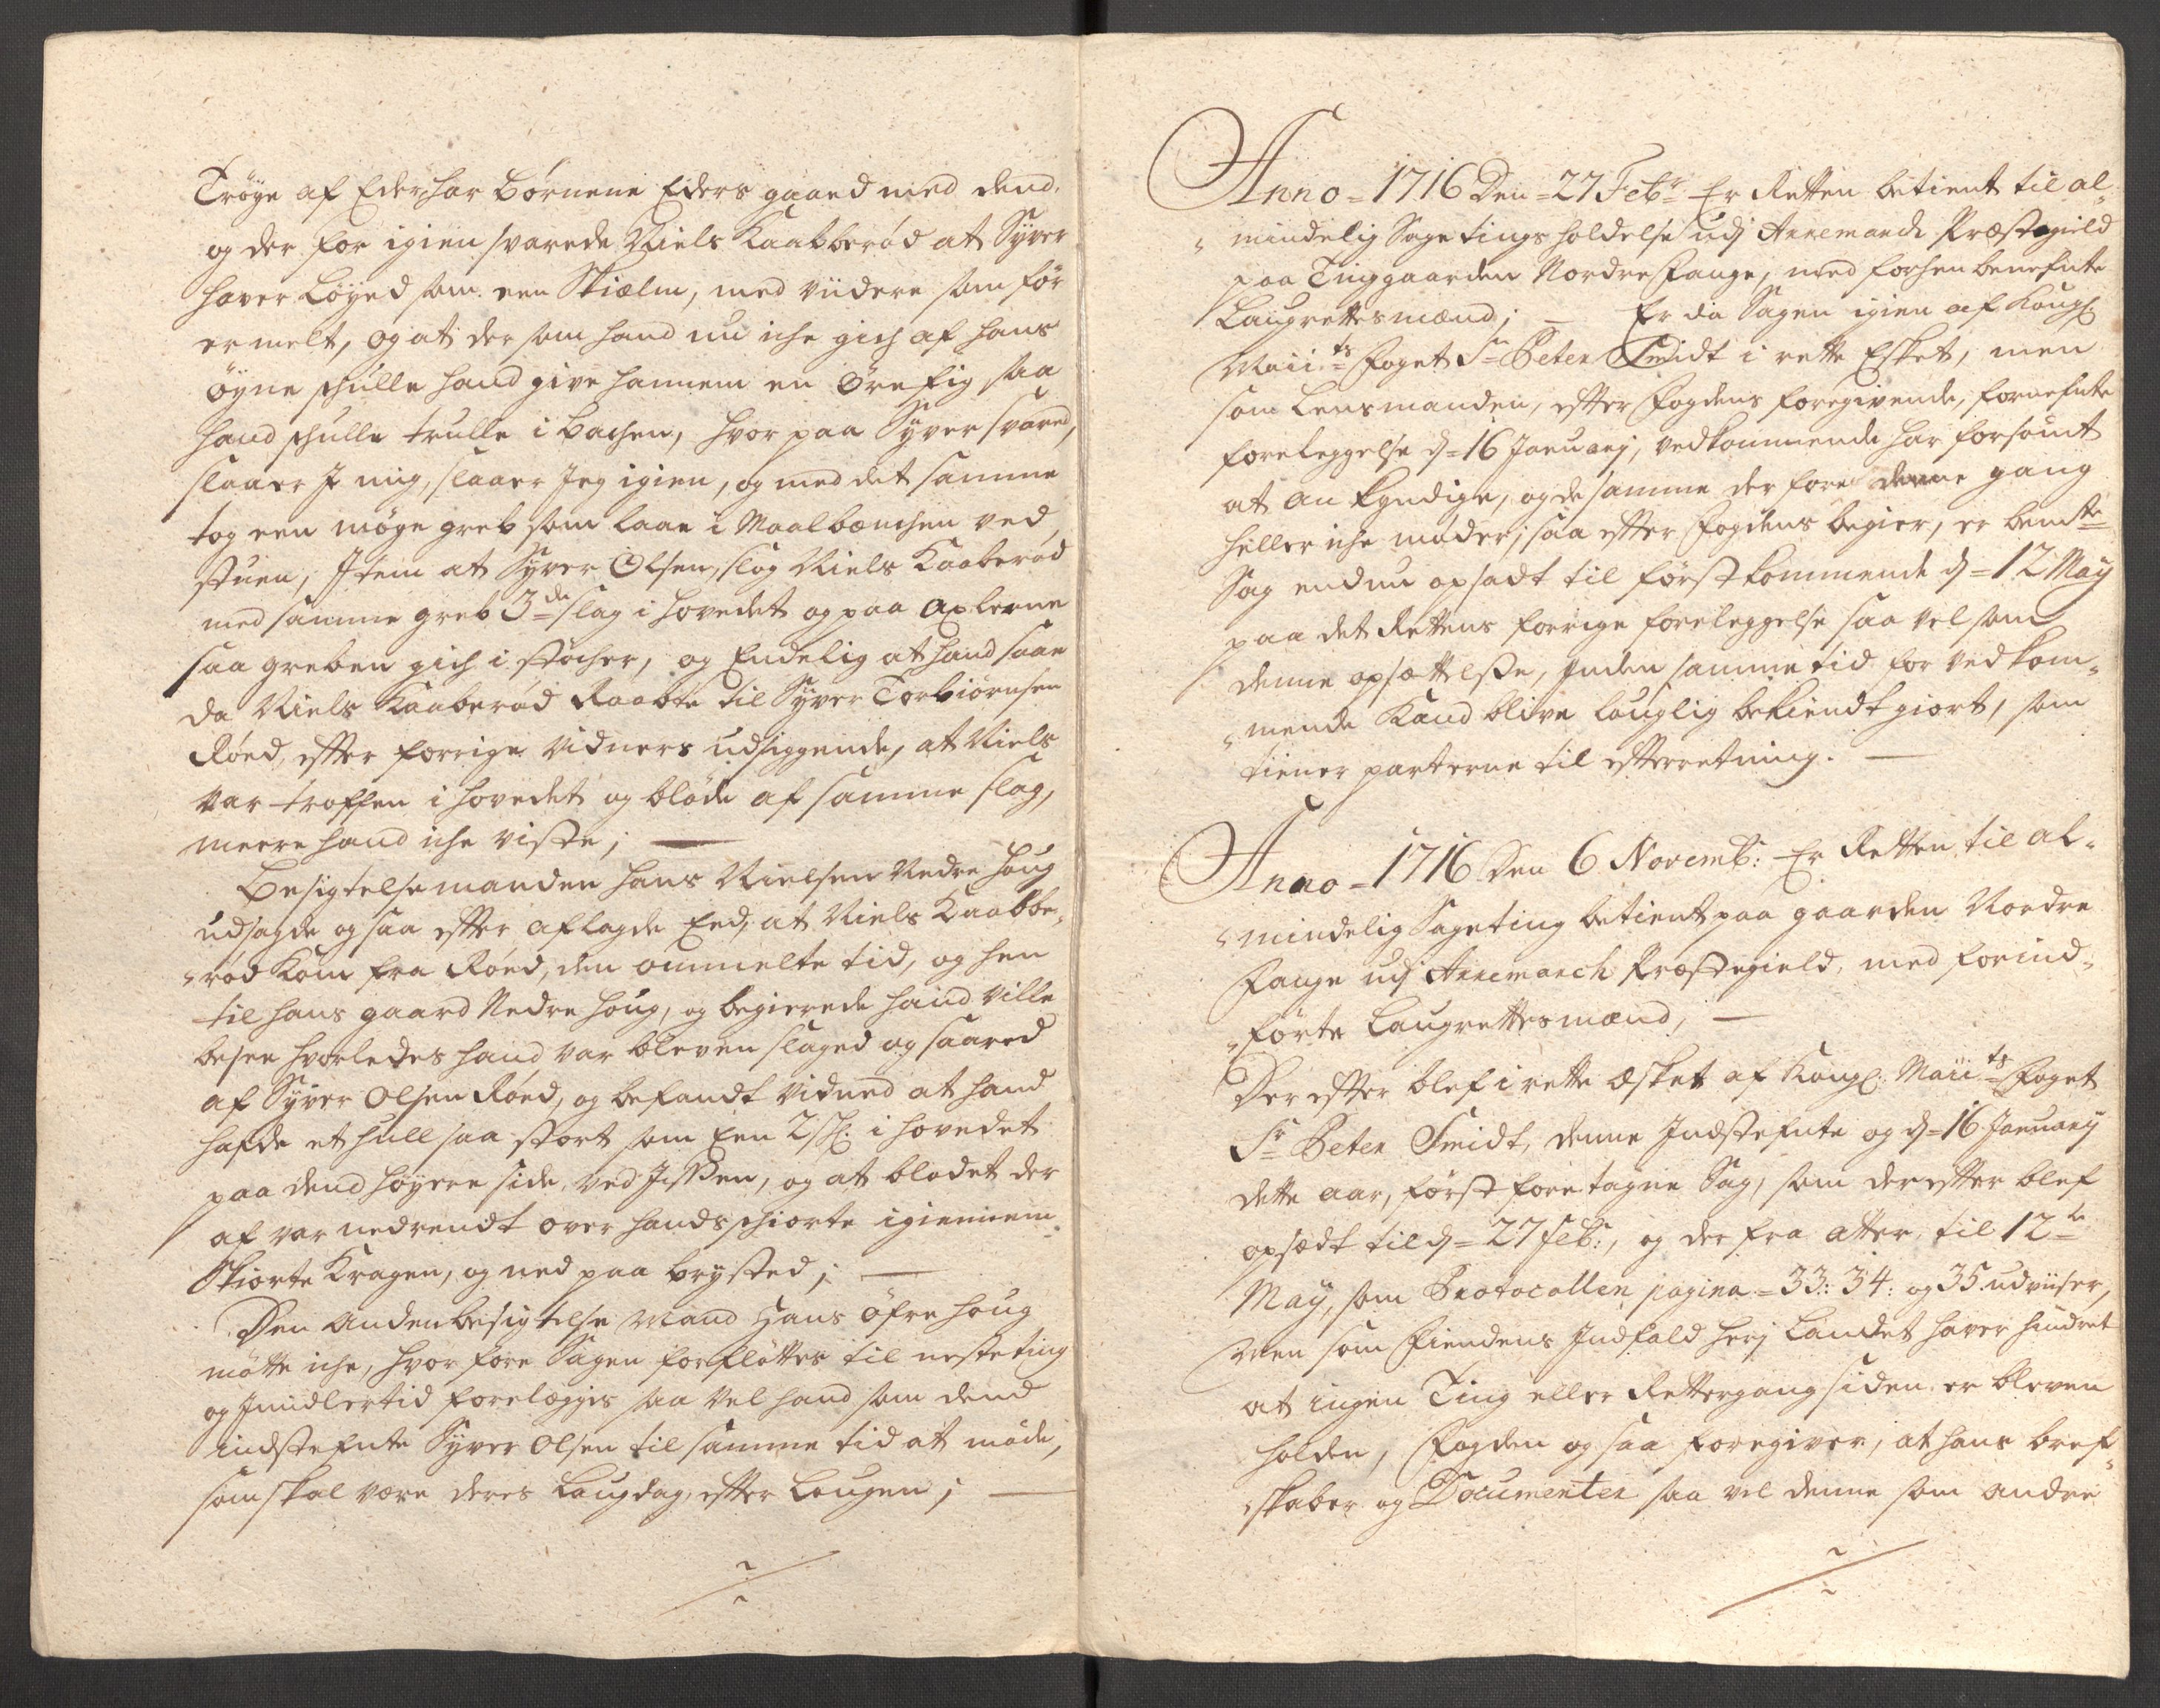 Trøye af Eder har børnene Eders gaaed med dend,
og der for igien svarede Niels Kaabberød at Syver
hafver løyed som een Skielm, med viidere som før
er melt, og at der som hand nu iche gich af hans
øyne schulle hand give hannem en ørefig saa
hand schulle trulle i bachen, hvor paa Syver svared,
slaaer I mig, slaaer Jeg igien, og med det samme
tog een møge greb som laae i Maalbænchen ved
stuen, Item at Syver Olsen slog Niels Kaaberød
med samme greb 3de slag i hovedet og paa axlerne
saa greben gich i støcher, og Endelig at hand saae
da Niels Kaaberød Raabte til Syver Torbiørnsen
Røed, efter forrige Vidners udsiggende, at Niels
var troffen i hovedet og blødde af samme slag,
meere hand iche viste; —
Besigtelsemanden hans Nielsen Nedre houg
udsagde og saa efter aflagde Eed, at Niels Kaabbe-
rød kom fra Røed, den ommelte tid, og hen
til hans gaard Nedre houg, og begierede hand ville
besee hvorledes hand var bleven slaged og saared
af Syver Olsen Røed, og befandt Vidned at hand
hafde et hull saa stort som Een 2 sh: i hovedet
paa dend høyere side, ved Issen, og at blodet der
af var nedrendt over hands schiorte igiennem
Skiorte Kragen, og ned paa brysted; —
Den Anden besigtelse Mand Hans øfre houg
møtte iche, hvor fore Sagen forfløttes til neste ting
og Imidlertid forelægges saa vel hand som dend
indstefnte Syver Olsen til samme tid at møde,
som skal være deres Laugdag, efter Lougen; —
Anno = 1716 Den = 27 Febr: Er Retten betient til al-
mindelig Sage tings holdelse udj Arremarch Præstegield
paa Tinggaarden Nordre Fange, med forhen benefnte
Laugrettesmænd; — Er da Sagen igien af Kongl:
Maii:ts Foget Sr Peter Smidt i rette Esket, men
som Lensmanden, efter Fogdens foregivende, fornefnte
foreleggelse d = 16 Januarij, vedkommende har forsømt
at an kyndige, og de samme der fore denne gang
heller iche møder; saa efter Fogdens begier, er bemte
Sag endnu opsadt til førstkommende d = 12 May
paa det Rettens forrige foreleggelse saa vel som
denne opsættelsse, inden samme tid for vedkom-
mende kand blive louglig bekiendt giort, som
tiener parterne til efterretning. —
Anno = 1716 Den 6 Novemb: Er Retten til al-
mindelig Sageting betient paa gaarden Nordre
Fange udj Arremarch Præstegield, med forind-
førte Laugrettesmænd, —
Der efter blef i rette æsket af Kongl: Maii:ts Foget
Sr Peter Smidt, denne Indstefnte og d = 16 January
dette aar, først foretagne Sag, som der efter blef
opsædt til d = 27 Feb:, og der fra atter til 12te
May, som Protocollen pagina = 33: 34: og 35 udviiser,
Men som Fiendens Indfald herj Landet haver hindret
at ingen Ting eller Rettergang siden er bleven
holden, Fogden og saa foregiver, at hans bref-
skaber og Documenter saa vel denne som andre